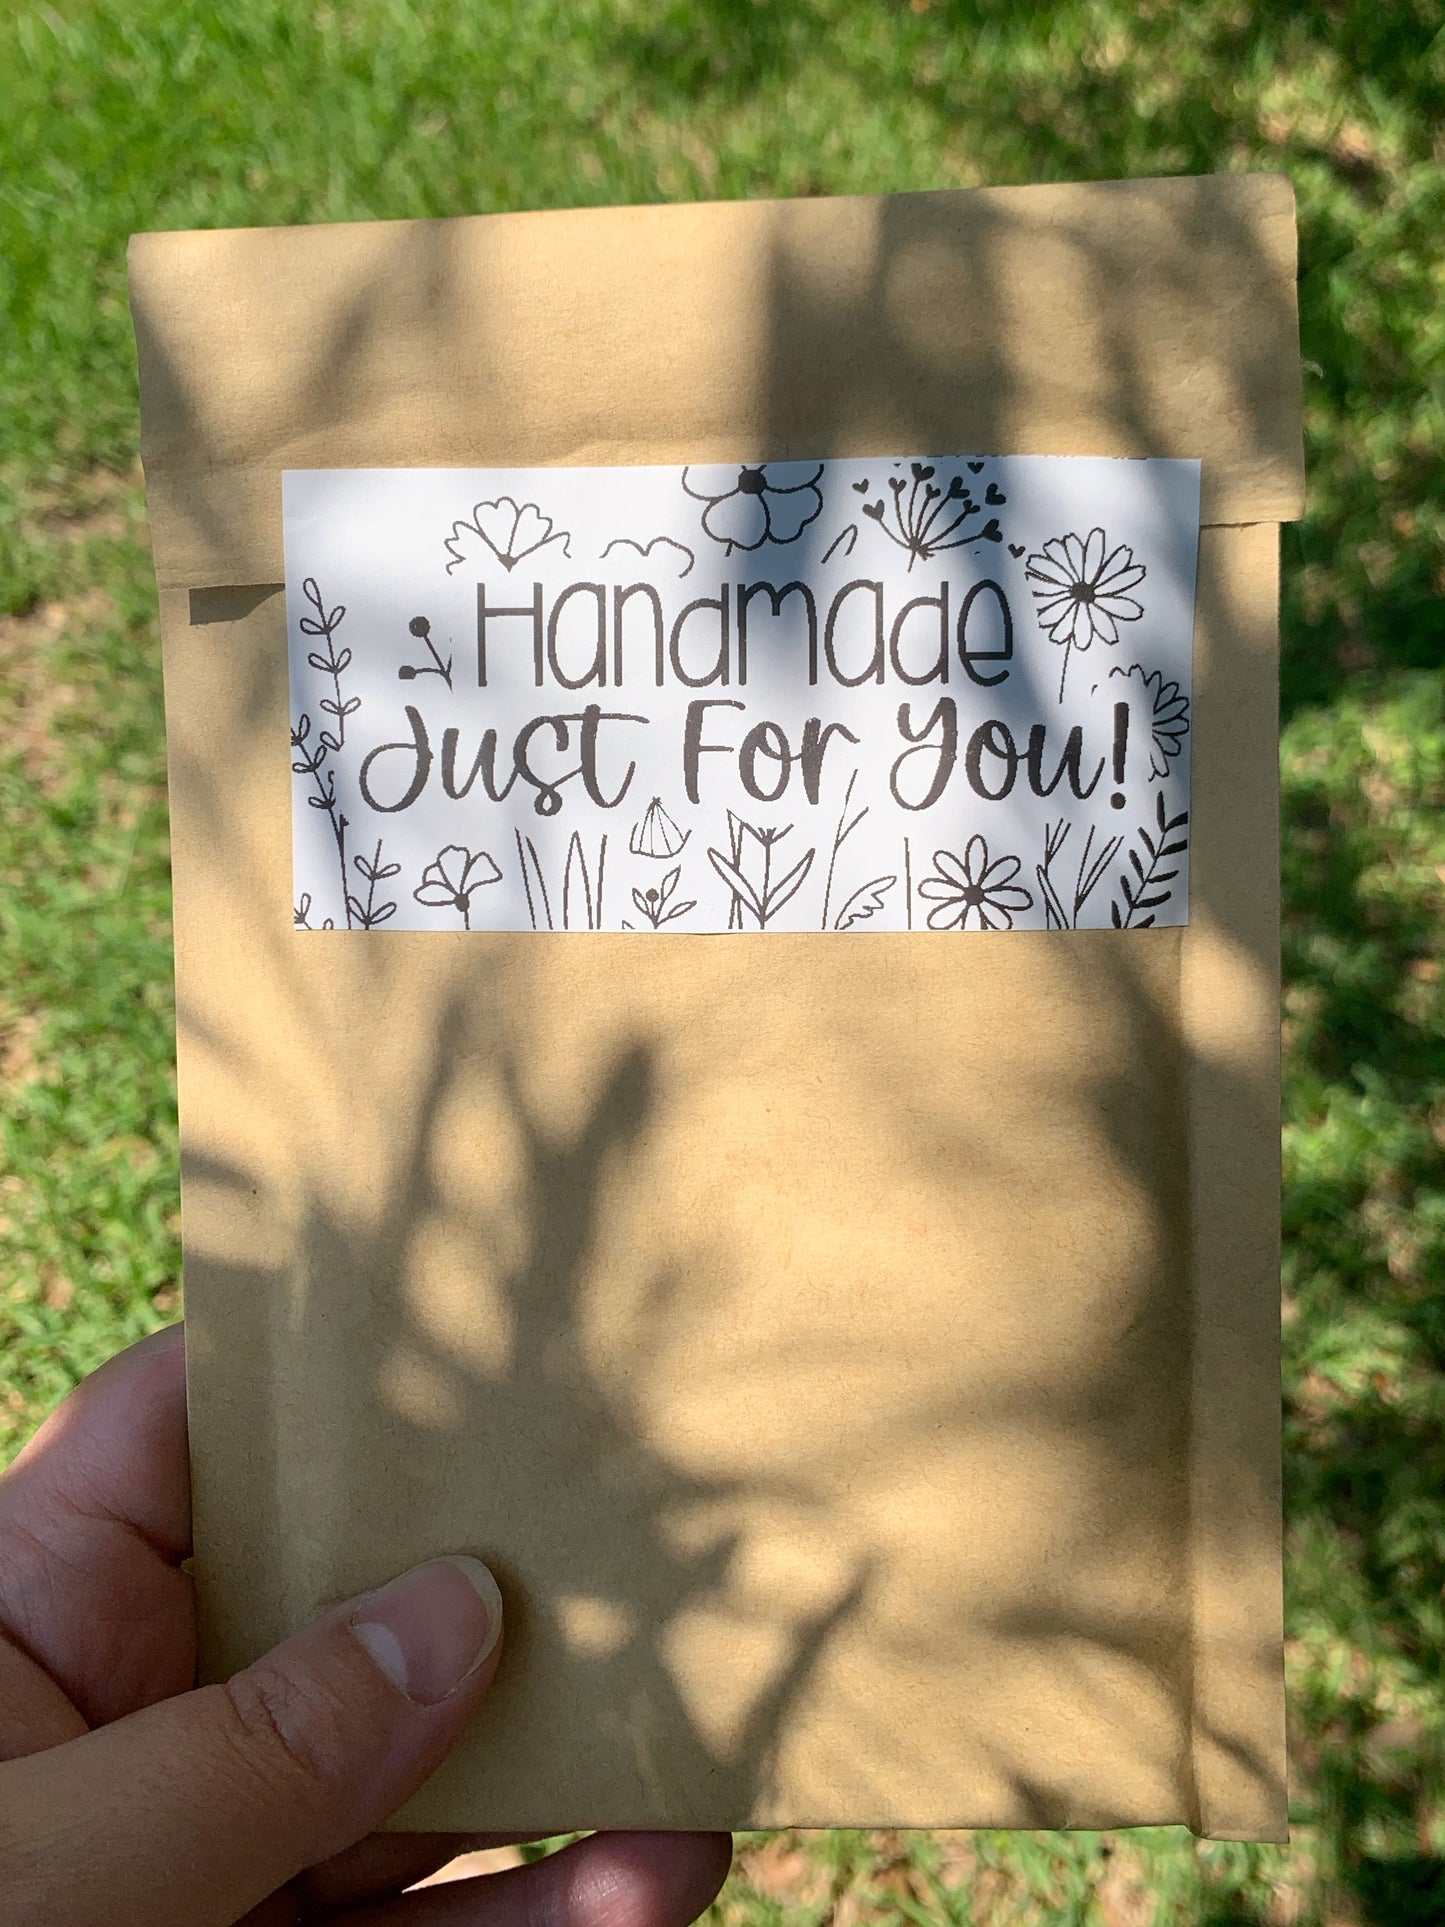 Handmade
Just For You!